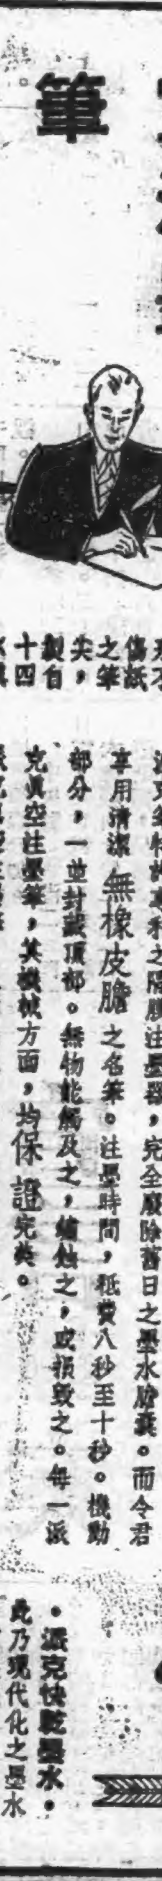 筆
傷紙
之筆
尖，
製自
十四
派克筆特許專利之隔膜注墨器，完全廢除舊日之墨水膽囊。而令君
享用清潔無橡皮膽之名筆。注墨時間，祇費八秒至十秒。機動
部分，一並封藏頂部。無物能觸及之，鏽蝕之，或損毀之。每一派
克眞空注墨筆，其機械方面，均保證完美。
•派克快乾墨水•
此乃現代化之墨水